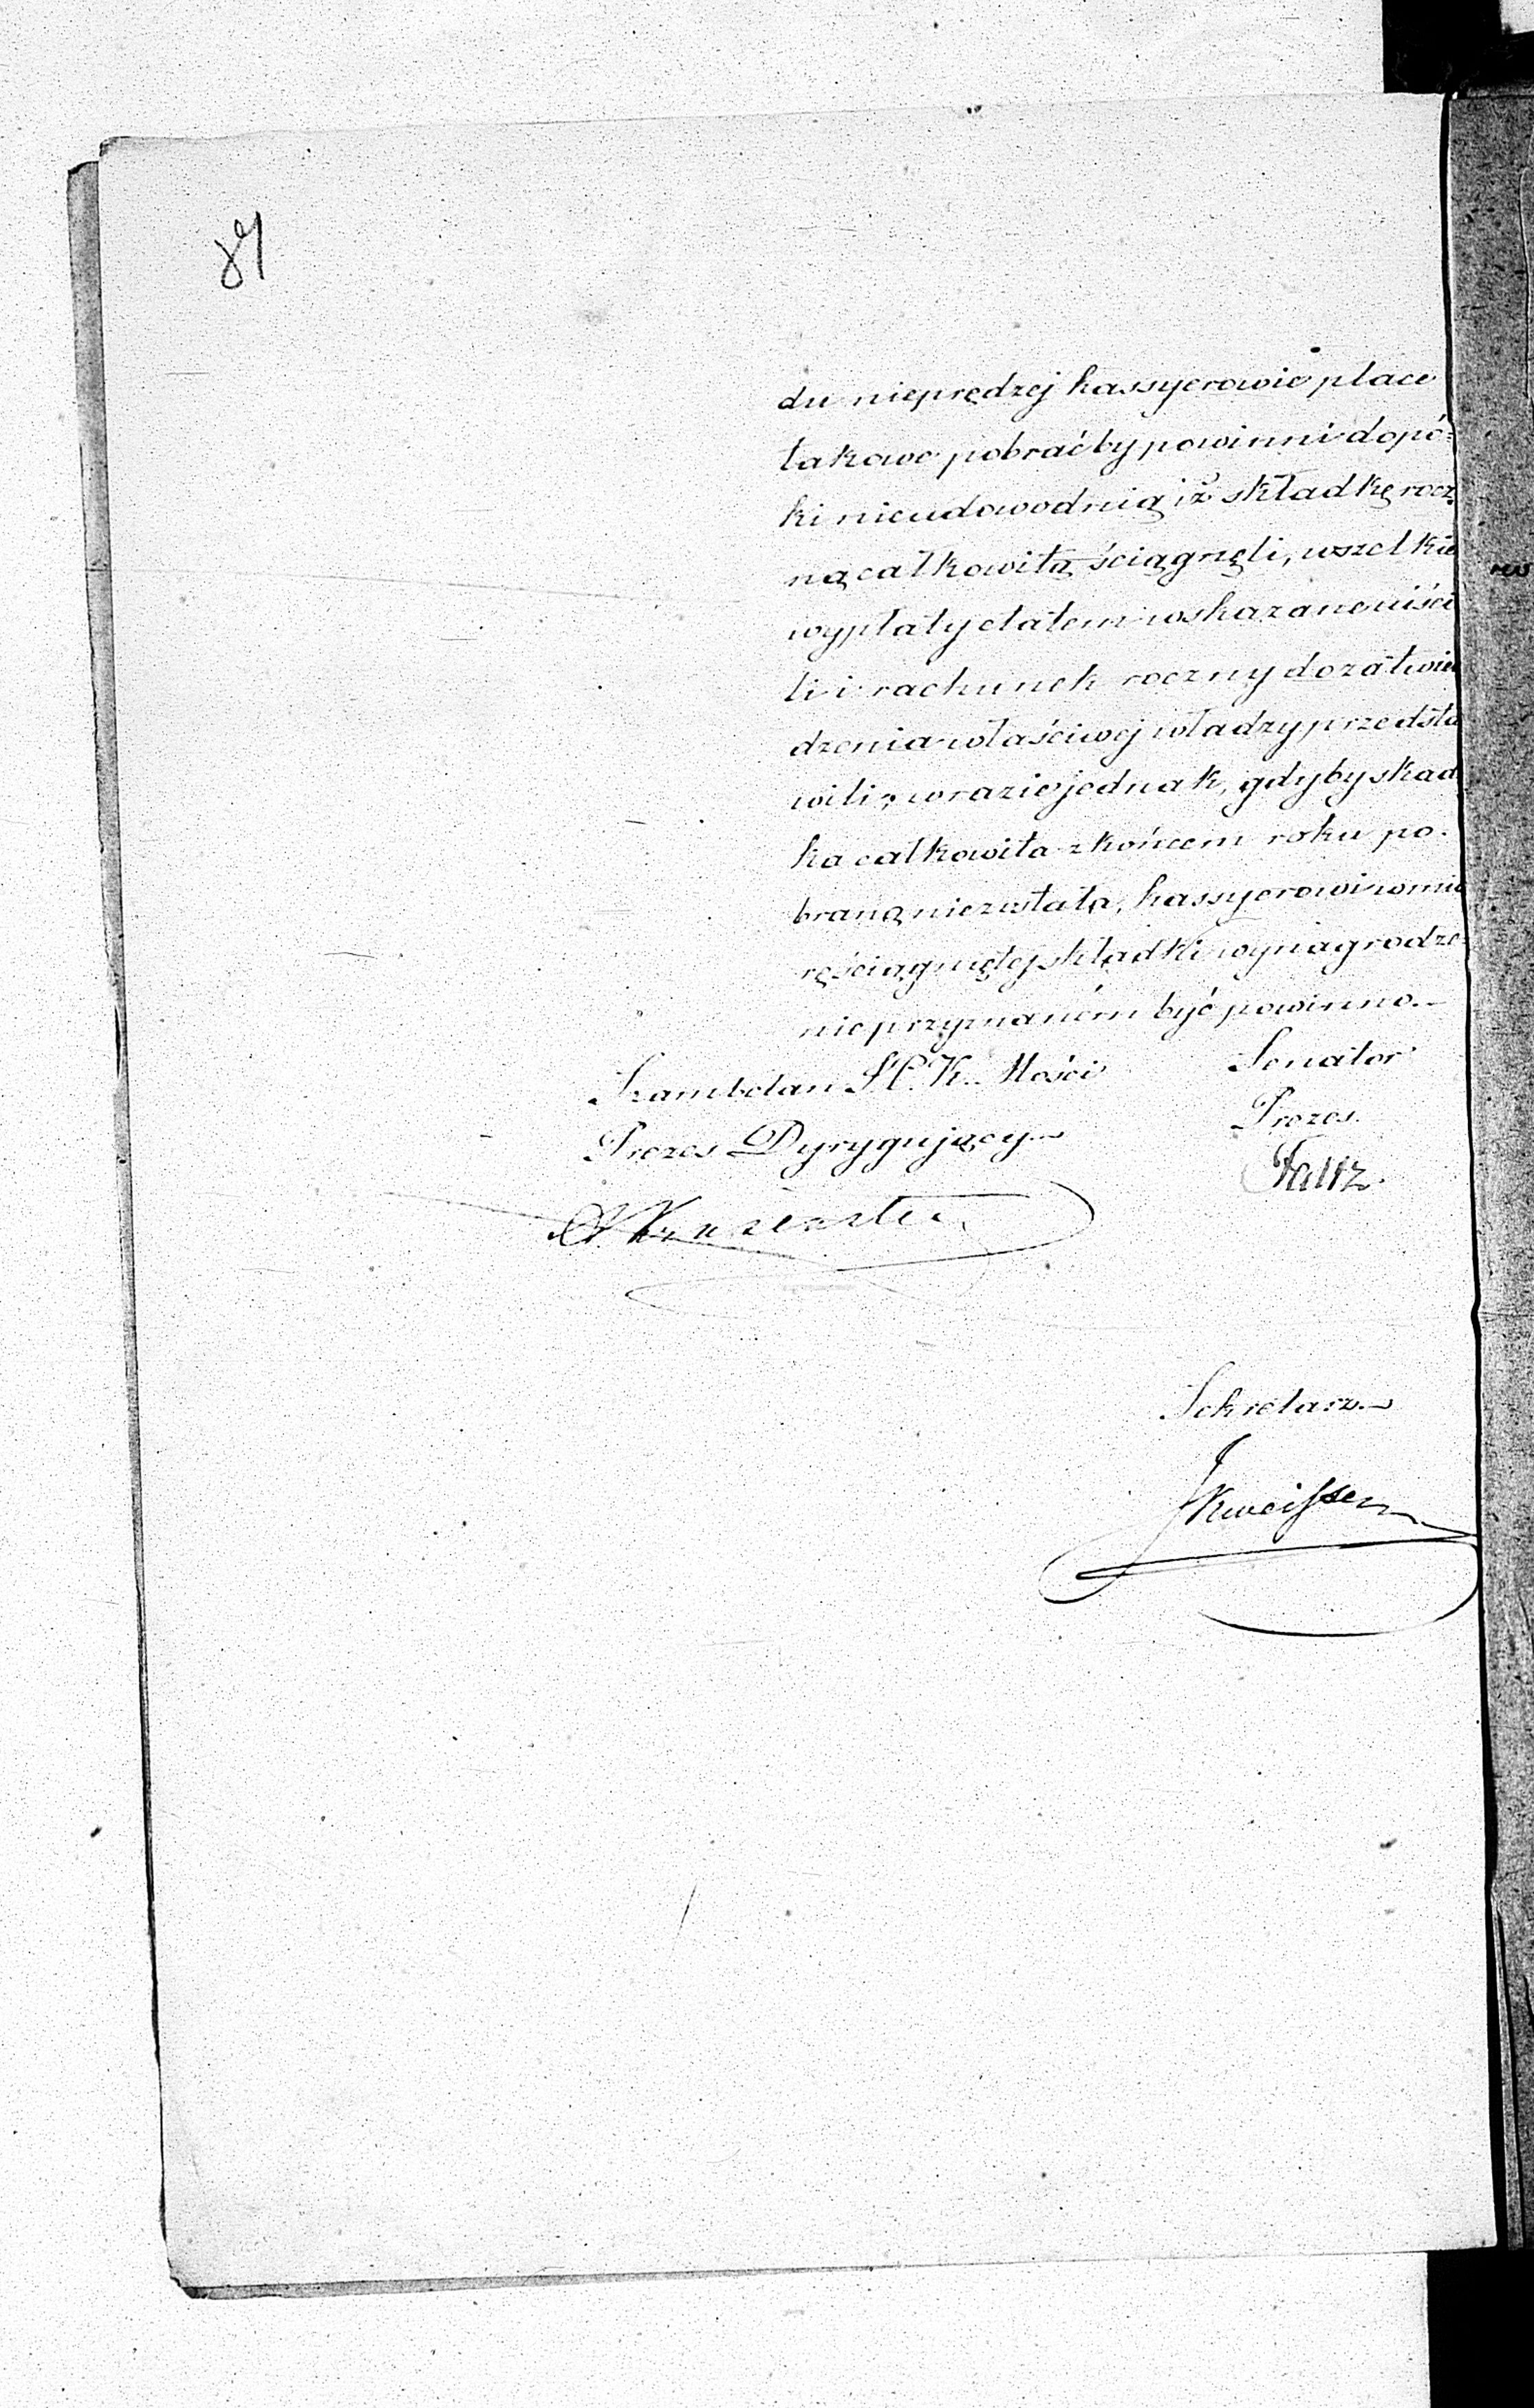 87
du nieprędzej kassyerowie płace
takowe pobraćby powinni dopó=
ki nieudowodnią iż składkę rocz
ną całkowitą ściągnęli, wszelkie
wypłaty etatem wskazane uiści
li i rachunek roczny do zatwier
dzenia właściwej władzy przedsta
wili, w razie jednak, gdyby skład
ka całkowita z końcem roku po-
braną niezostała, kassyerowi w mia
rę ściągniętej składki wynagrodze=
nie przyznaném być powinno.—
Szambelan J. C. K. Mości Senator
Prezes Dyrygujący Prezes.
Sekretarz